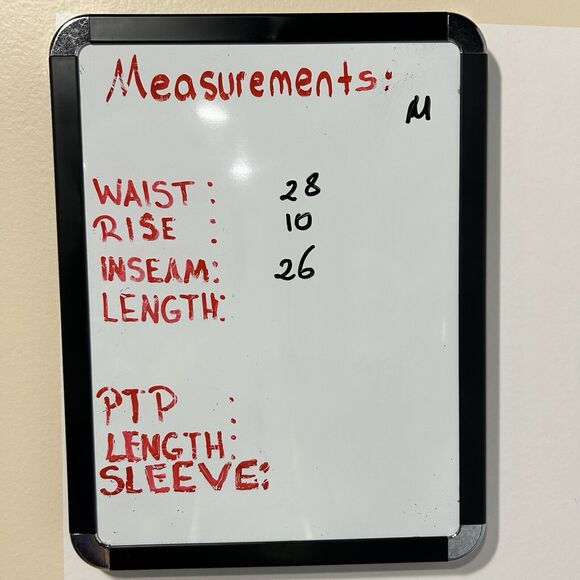 Measurements:
M
WAIST: 28
RISE : 10
INSEAM: 26
LENGTH:
PTP :
LENGTH:
SLEEVE: